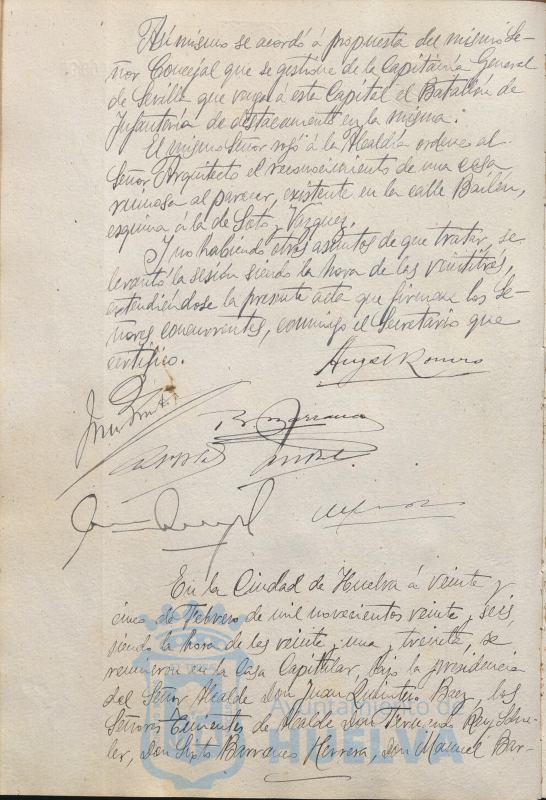 Asi mismo se acordó á propuesta del mismo Se-
ñor Concejal que se gestione de la Capitanía General
de Sevilla que venga á esta Capital el Batallón de
Infantería de destacamento en la misma.
El mismo Señor rogó á la Alcaldía ordene al
Señor Arquitecto el reconocimiento de una casa
ruinosa al parecer, existente en la calle Bailén,
esquina á la de Soto y Vazquez.
Y no habiendo otros asuntos de que tratar, se
levantó la sesión siendo la hora de las veintitrés,
extendiéndose la presente acta que firman los Se-
ñores concurrentes, conmigo el Secretario que
certifico.
Angel Romero
En la Ciudad de Huelva á veinte y
cinco de Febrero de mil novecientos veinte y seis
siendo la hora de las veinte y una y treinta, se
reunieron en la Casa Capitular, bajo la presidencia
del Señor Alcalde Don Juan Quintero Baez, los
Señores Tenientes de Alcalde Don
Don Sixto Barranco Herrera, Don Manuel Bar-
Ayuntamiento de
HUELVA